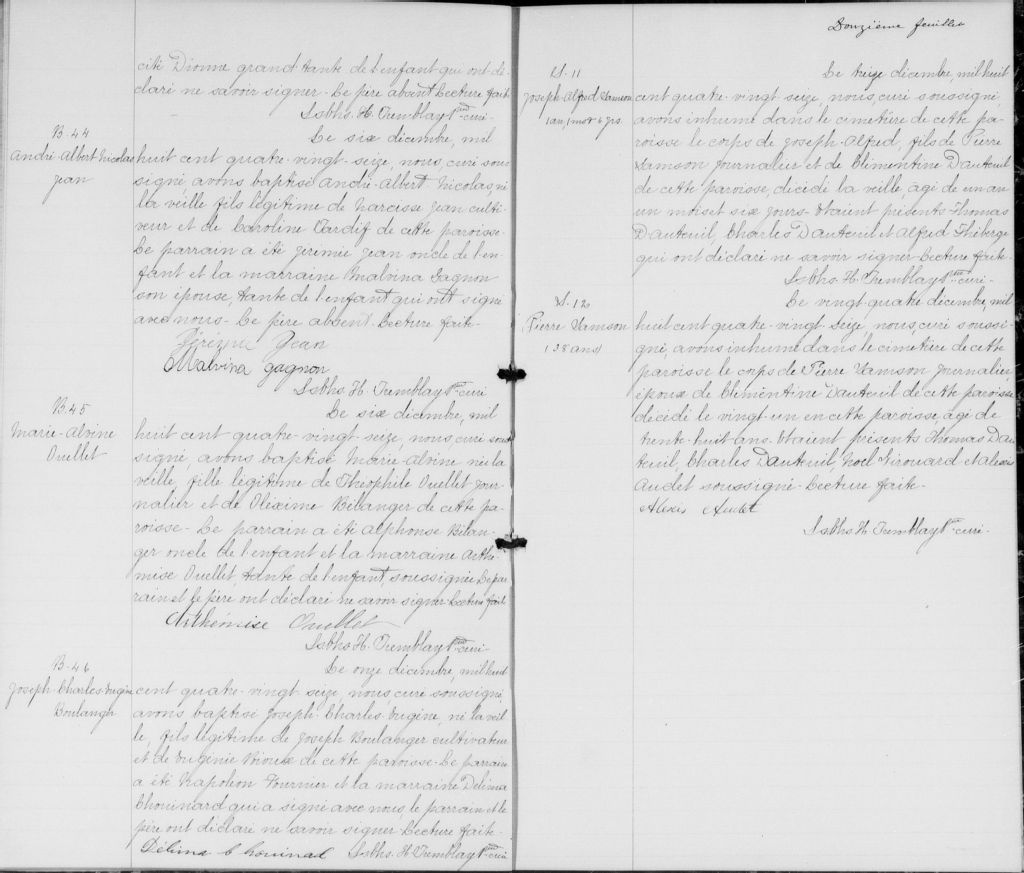 cité Dionne grand-tante de l'enfant qui ont dé-
claré ne savoir signer. Le père absent Lecture faite
H. Tremblay Ptre curé-
B-44
André-Albert-Nicolas
Jean
Le six décembre, mil
huit cent quatre-vingt-seize, nous curé sous-
signé, avons baptisé André-Albert-Nicolas, né
la veille, fils légitime de Narcisse Jean culti-
veur et de Caroline Tardif de cette paroisse-
Le parrain a été Jérémie Jean oncle de l'en-
fant et la marraine Malvina Gagnon
son épouse, tante de l'enfant qui ont signé
avec nous- Le père absent. Lecture faite-
Jean
Malvina Gagnon
H. Tremblay Ptre curé
B-45
Marie-Alvine
Ouellet
Le six décembre, mil
huit cent quatre-vingt-seize, nous curé sous
signé, avons baptisé Marie-Alvine née la
veille, fille légitime de Théophile Ouellet jour-
nalier et de Oléxime Bélanger de cette pa-
roisse- Le parrain a été Alphonse Bélan-
ger oncle de l'enfant et la marraine Arthé-
mise Ouellet, tante de l'enfant, soussignée Le par
rain et le père ont déclaré ne savoir signer Lecture faite
Arthémise Ouellet
H. Tremblay Ptre curé-
B-46
Joseph-Charles-Eugène
Boulanger
Le onze décembre, mil huit
cent quatre-vingt-seize, nous, curé soussigné,
avons baptisé Joseph-Charles-Eugène, né la veil
le, fils légitime de Joseph Boulanger cultivateur
et de Eugénie Rioux de cette paroisse- Le parrain
a été Napoléon Fournier et la marraine Délima
Chouinard qui a signé avec nous, le parrain et le
père ont déclaré ne savoir signer Lecture faite-
Délima Chouinard H. Tremblay Ptre curé
Douzième feuillet
S. 11
Joseph-Alfred Samson
1 an, 1 mois 6 jrs.
Le treize décembre, mil huit
cent quatre-vingt-seize, nous, curé soussigné,
avons inhumé dans le cimetière de cette pa-
roisse le corps de Joseph-Alfred, fils de Pierre
Samson journalier et de Clémentine Dauteuil
de cette paroisse, décédé la veille, âgé de un an
un mois et six jours- Etaient présents Thomas
Dauteuil, Charles Dauteuil et Alfred Théberge
qui ont déclaré ne savoir signer Lecture faite-
H. Tremblay Ptre curé-
S. 12
Pierre Samson
(38 ans)
Le vingt-quatre décembre, mil
huit cent quatre-vingt-seize, nous, curé soussi-
gné, avons inhumé dans le cimetière de cette
paroisse le corps de Pierre Samson journalier,
époux de Clémentine Dauteuil de cette paroisse
décédé le vingt-un en cette paroisse, âgé de
trente-huit ans. Etaient présents Thomas Dau
teuil, Charles Dauteuil, Noël Girouard et Alexis
Audet soussigné- Lecture faite-
Alexis Audet
H. Tremblay Ptre curé-